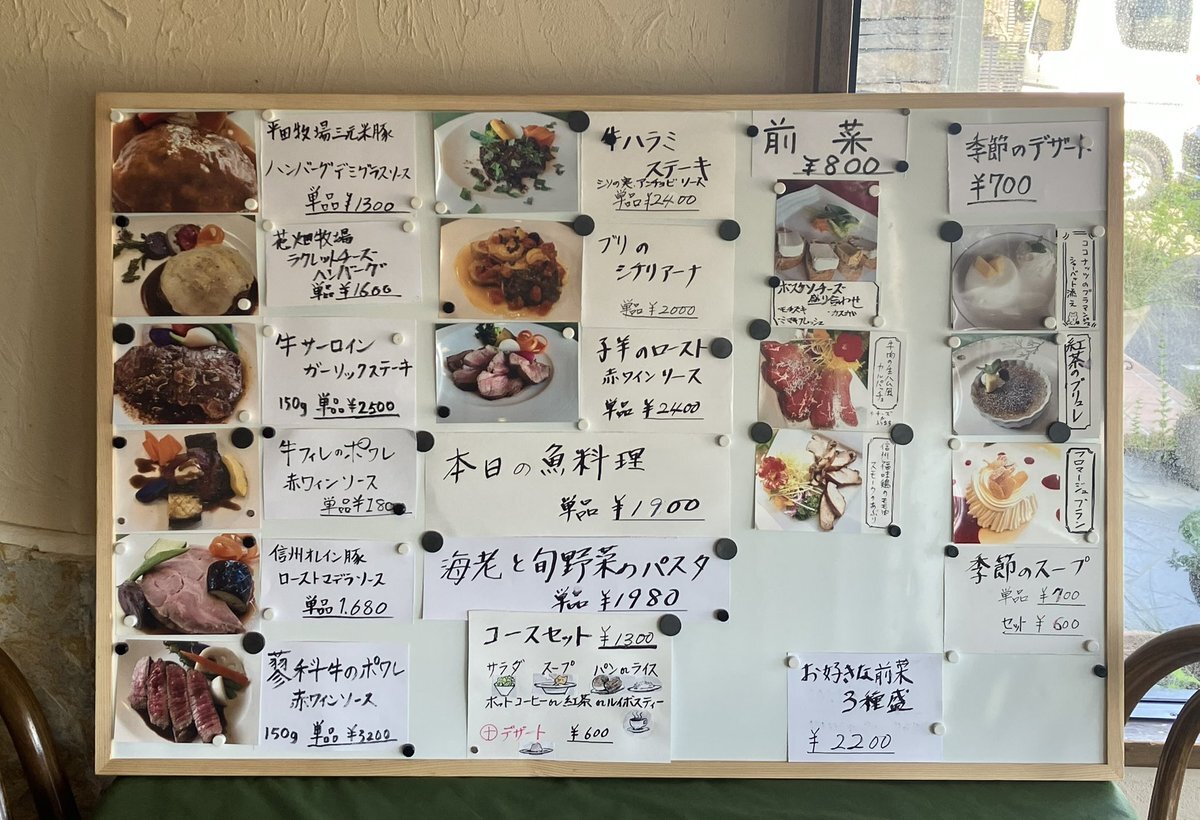 平田牧場三元米豚
ハンバーグデミグラスソース
単品¥1300
花畑牧場
ラクレットチーズ
ハンバーグ
単品¥1600
牛サーロイン
ガーリックステーキ
150g 単品¥2500
牛フィレのポワレ
赤ワインソース
単品¥180
信州オレイン豚
ローストマデラソース
単品1.680
蓼科牛のポワレ
赤ワインソース
150g 単品¥3200
牛ハラミ
ステーキ
シソの実、アンチョビソース
単品¥2400
ブリの
シチリアーナ
単品¥2000
子羊のロースト
赤ワインソース
単品¥2400
本日の魚料理
単品¥1900
海老と旬野菜のパスタ
単品¥1980
コースセット¥1300
サラダ スープ パンorライス
ホットコーヒーor紅茶orルイボスティー
⊕デザート ¥600
前菜
¥800
ボスケソチーズ
盛り合わせ
スモークのあぶり
お好きな前菜
3種盛
¥2200
季節のデザート
¥700
ココナッツのブラマンジェ
シャーベット添え
紅茶のブリュレ
フロマージュブラン
季節のスープ
単品 ¥700
セット ¥600